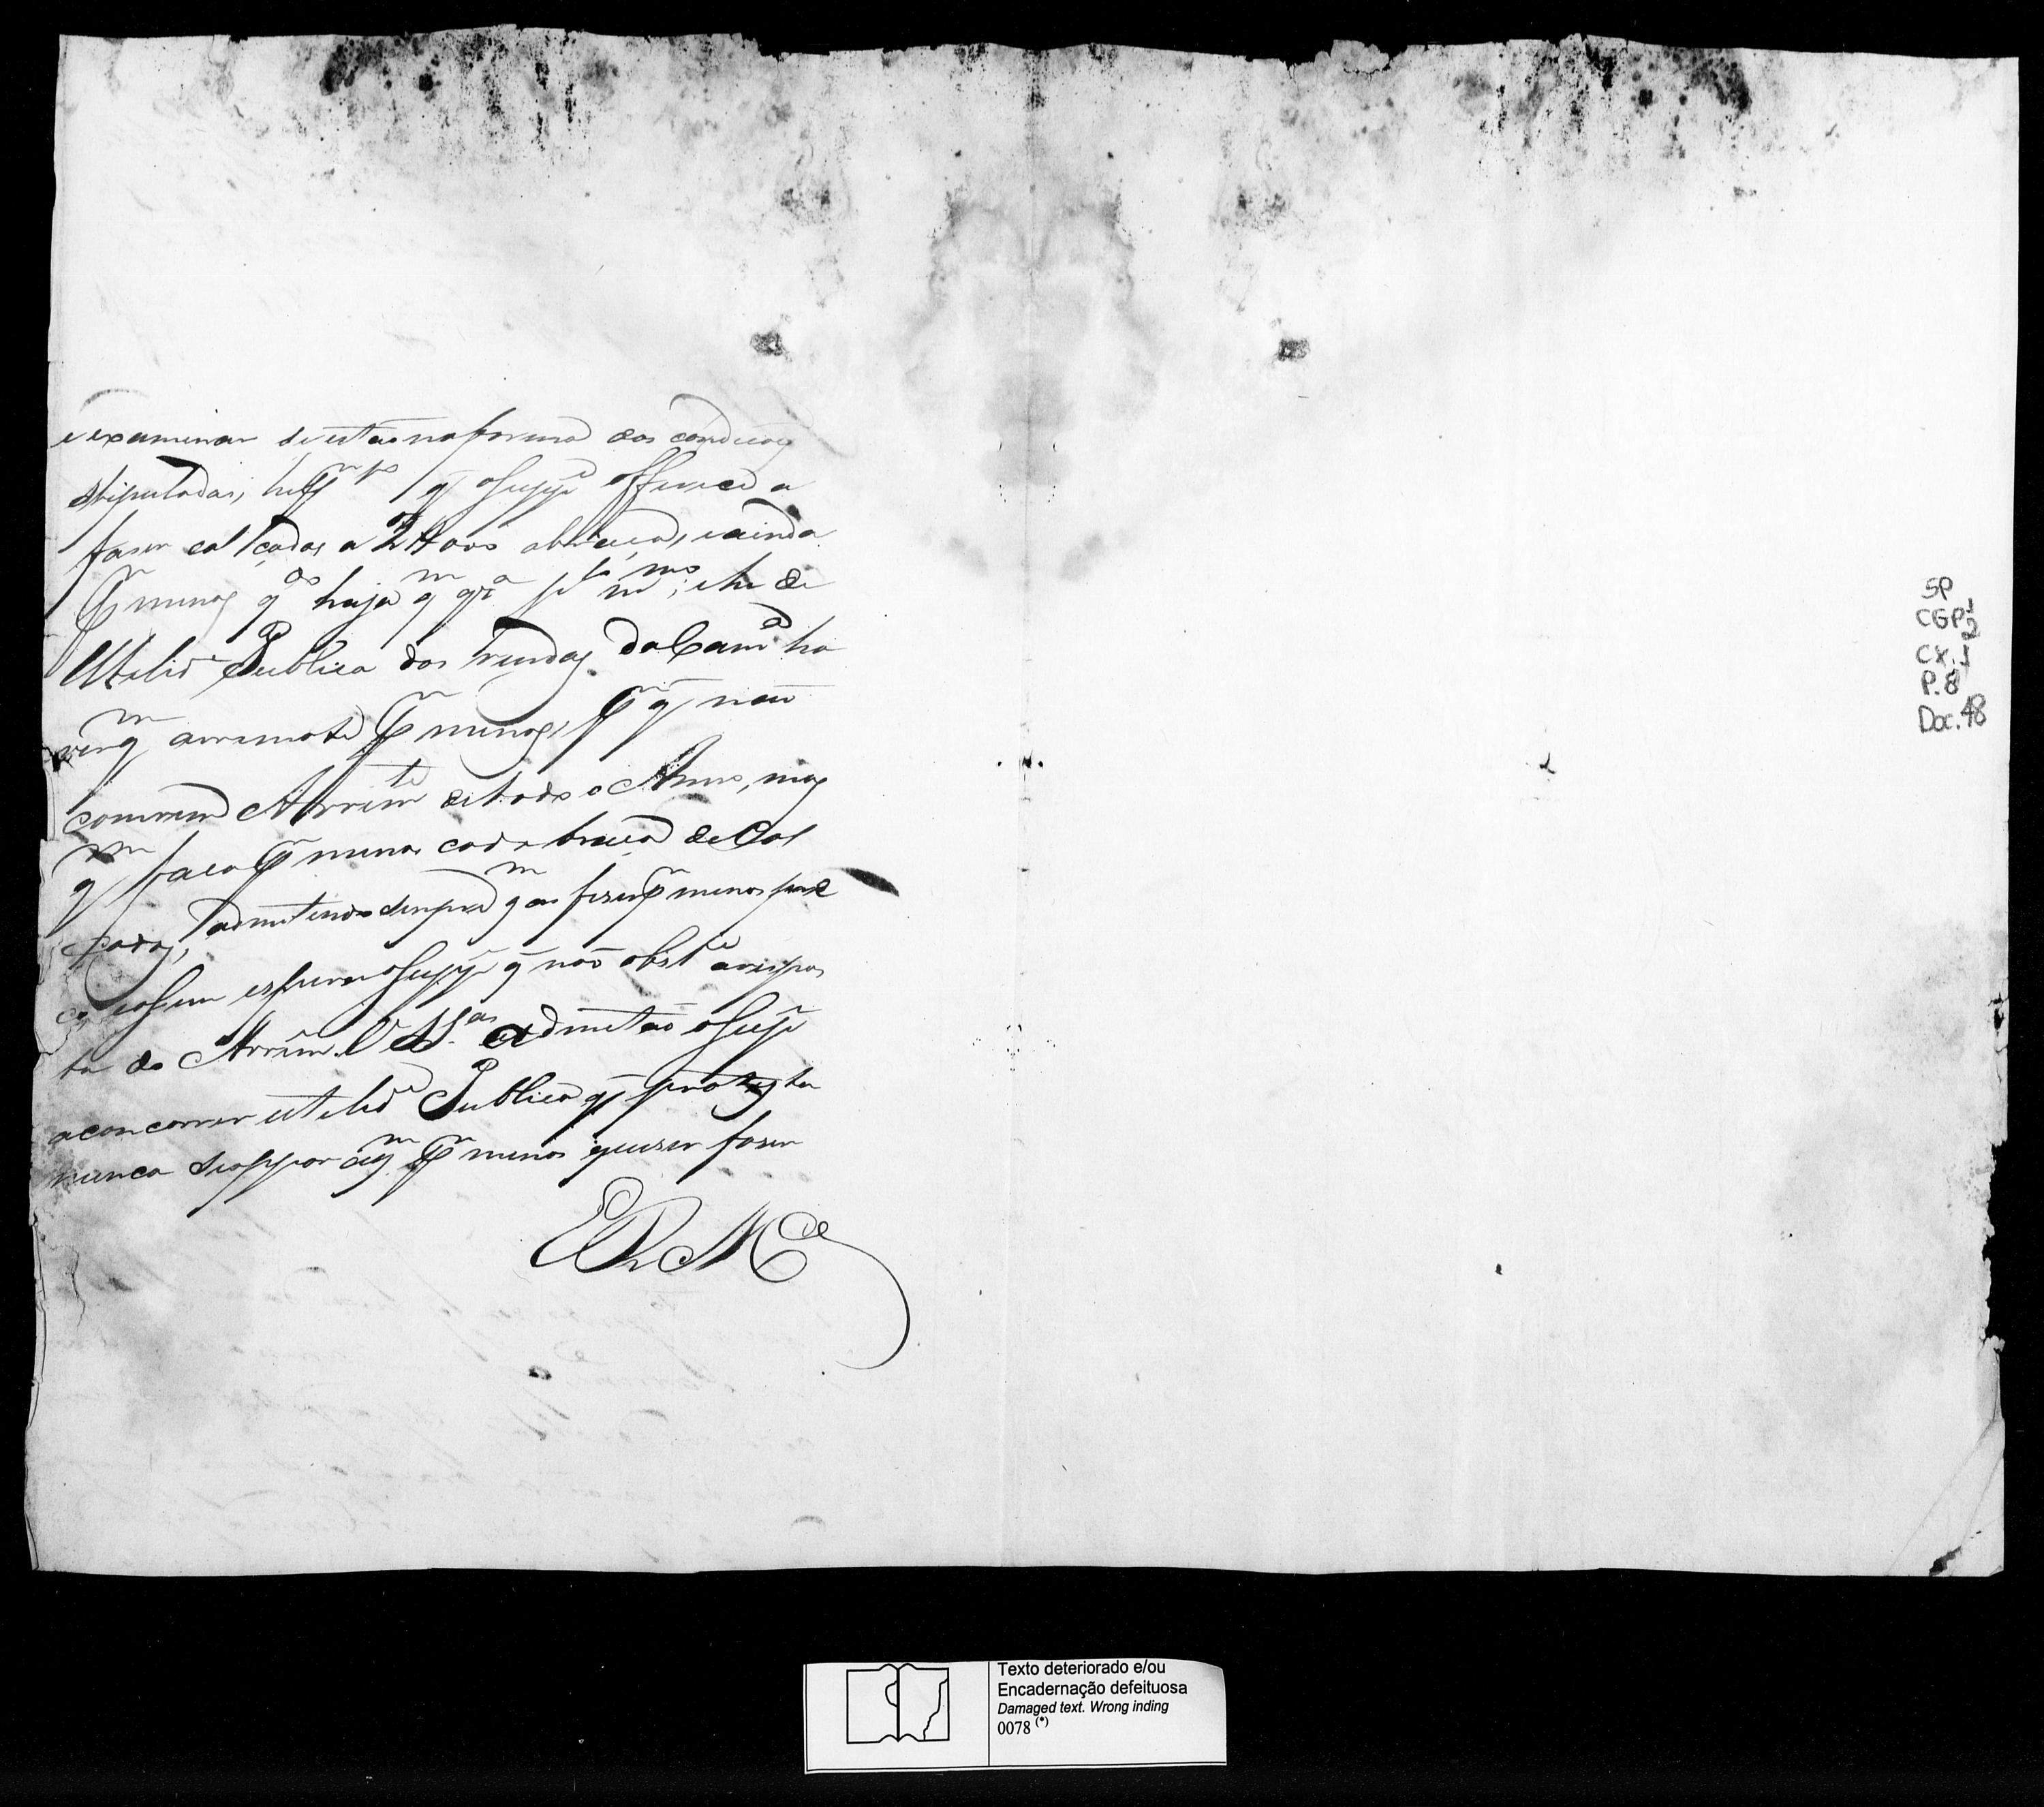 e examinar se estão na forma das condicoẽs
stipuladas, he
q̃ o Supp.e offerece a
faser calçadas a 2400 a braça, e ainda
p.r menos q.do haja q.m
Utilid.e Publica das Rendas da Cam.a ha
ver q.m arremate p.r menos, p.r q̃ não
de todo o Anno, mas
q.m faça p.r menos cada braça de Cal
çadas, admetindo sempre q.m as fizer p.r menos pre
ço, e assim espera o Supp.e q̃ não obst.e a respos
ta do Arrem.e V S.as admetão o Supp.e
a concorrer utelid.e Publica, q̃ protesta
nunca se oppor a q.m p.r menos queser faser
E R M.ce
SP
CGP 1/2
CX. 1
P. 8
Doc. 48
Texto deteriorado e/ou
Encadernação defeituosa
Damaged text. Wrong inding
0078 (*)